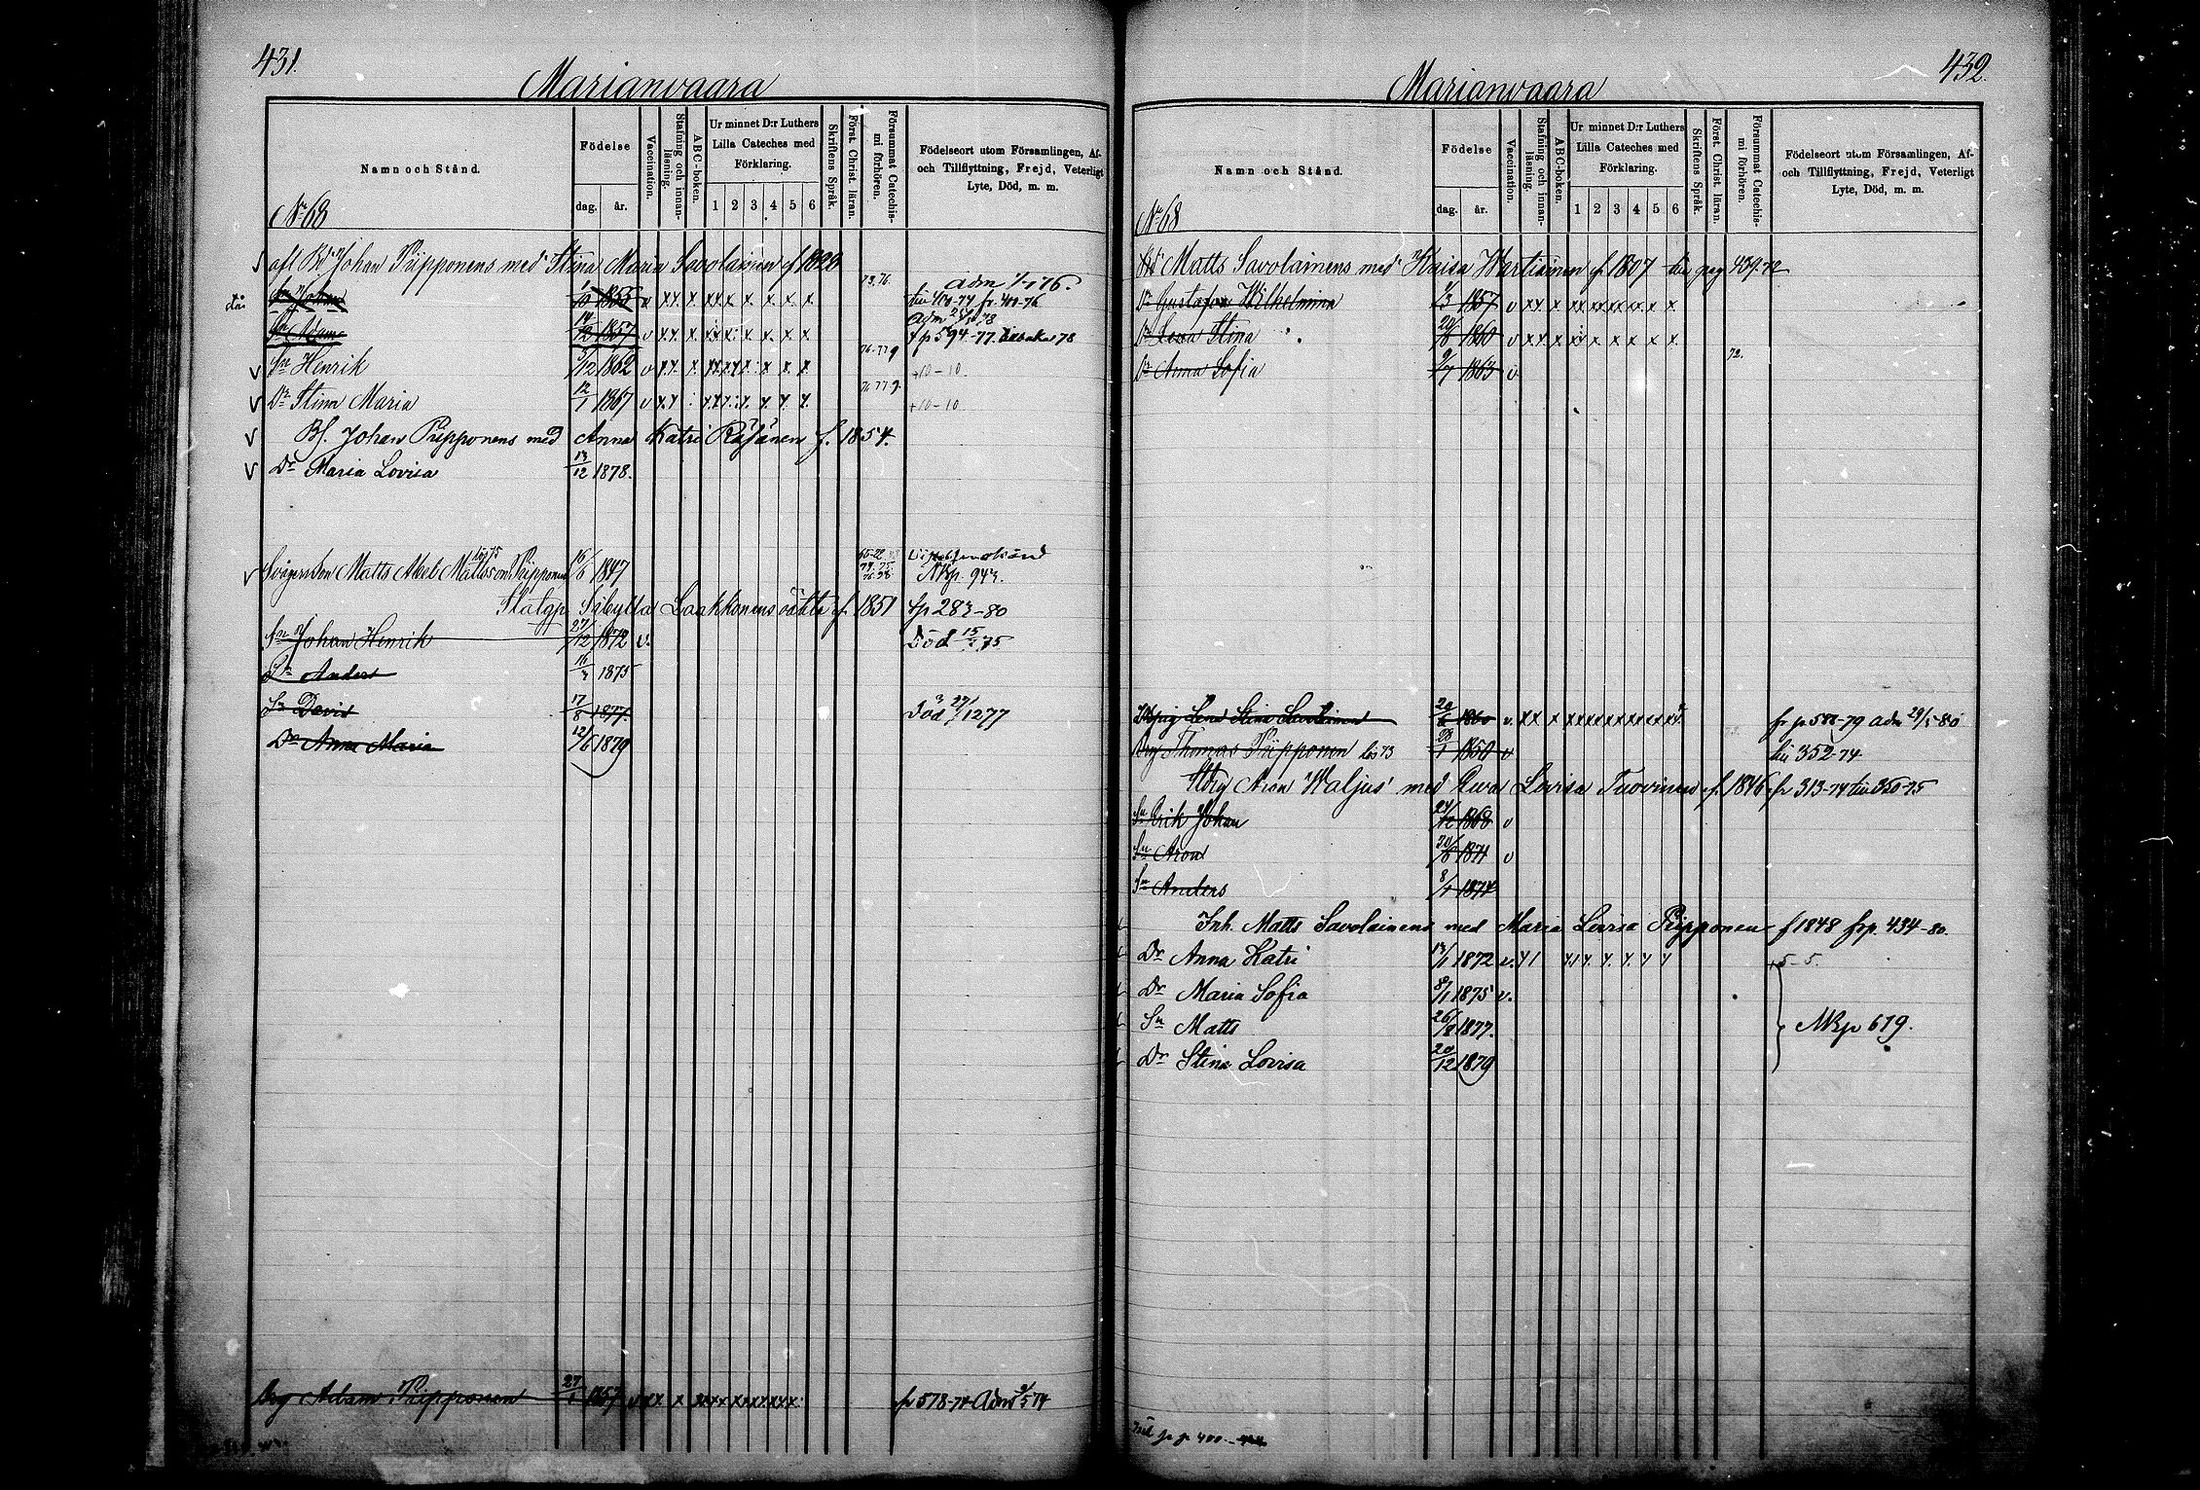 431.
Marianvaara
Namn och Stånd.
Födelse
dag.
år.
Vaccination.
Stafning och innan-läsning.
ABC-boken.
Ur minnet D:r Luthers
Lilla Cateches med
Förklaring.
1 2 3 4 5 6
Skriftens Språk.
Först. Christ. läran.
Försummat Catechis-mi förhören.
Födelseort utom Församlingen, Af-
och Tillflyttning, Frejd, Veterligt
Lyte, Död, m. m.
No 68
Johan Piipponens med Stina Maria Savolainen f. 1820
73.76. adm 76.
Sn Johan 1855 v x x x x x x x x x
Sn Adam 1857 v x x x x x x x x x f p 594-77 tillbaka 78
76 77 9
Sn Henrik 5/12 1862 v x x x x x x x x x +10-10.
Dr Stina Maria 12/1 1867 v +10-10
Bf. Johan Piipponens med Anna Katri Räsänen f. 1854.
Dr Maria Lovisa 13/12 1878.
Svågers son Matts Abel Mattsson Piipponen 16/6 1847
Nkp. 943.
Sibylla Laakkonens f 1851 fp 283-80
Sn Johan Henrik 27/12 1872 v. Död 75
Sn Anders 1875
Sn David 17/8 1877. Död 1277
Dr Anna Maria 12/6 1879
Drg Adam Piipponen 27/1 1857 v x x x x x x x x x x fr 578-74 Adm 74
432.
Marianvaara
Namn och Stånd.
Födelse
dag.
år.
Vaccination.
Stafning och innan-läsning.
ABC-boken.
Ur minnet D:r Luthers
Lilla Cateches med
Förklaring.
1 2 3 4 5 6
Skriftens Språk.
Först. Christ. läran.
Försummat Catechis-mi förhören.
Födelseort utom Församlingen, Af-
och Tillflyttning, Frejd, Veterligt
Lyte, Död, m. m.
No 68
Matts Savolainens med Kaisa Wartiainen f. 1807 till pag 439.72
Dr Gustafva Wilhelmina 1/3 1857 v x x x x x x x x x
Dr Lena Stina 20/6 1860 v x x x x x x x x x
Dr Anna Sofia 9/7 1863 v 72.
Lena Stina Savolainen 20/6 1860 v. x x x x x x x x x x fr p 588-79 adm 80
Thomas Piipponen 23/1 1850 v till 352-74.
Aron Waljus med Eva Lovisa Tuovinen f. 1846 fr 313-74 till 350-75
Sn Erik Johan 24/12 1868 v
Sn Aron 30/8 1871 v
Sn Anders 8/1 1874
Inh. Matts Savolainens med Maria Lovisa Piipponen f 1848 frp. 434-80.
Dr Anna Katri 1872 v. 5-5.
Dr Maria Sofia 8/1 1875 v.
Sn Matts 26/8 1877. Nkp 619.
Dr Stina Lovisa 20/12 1879